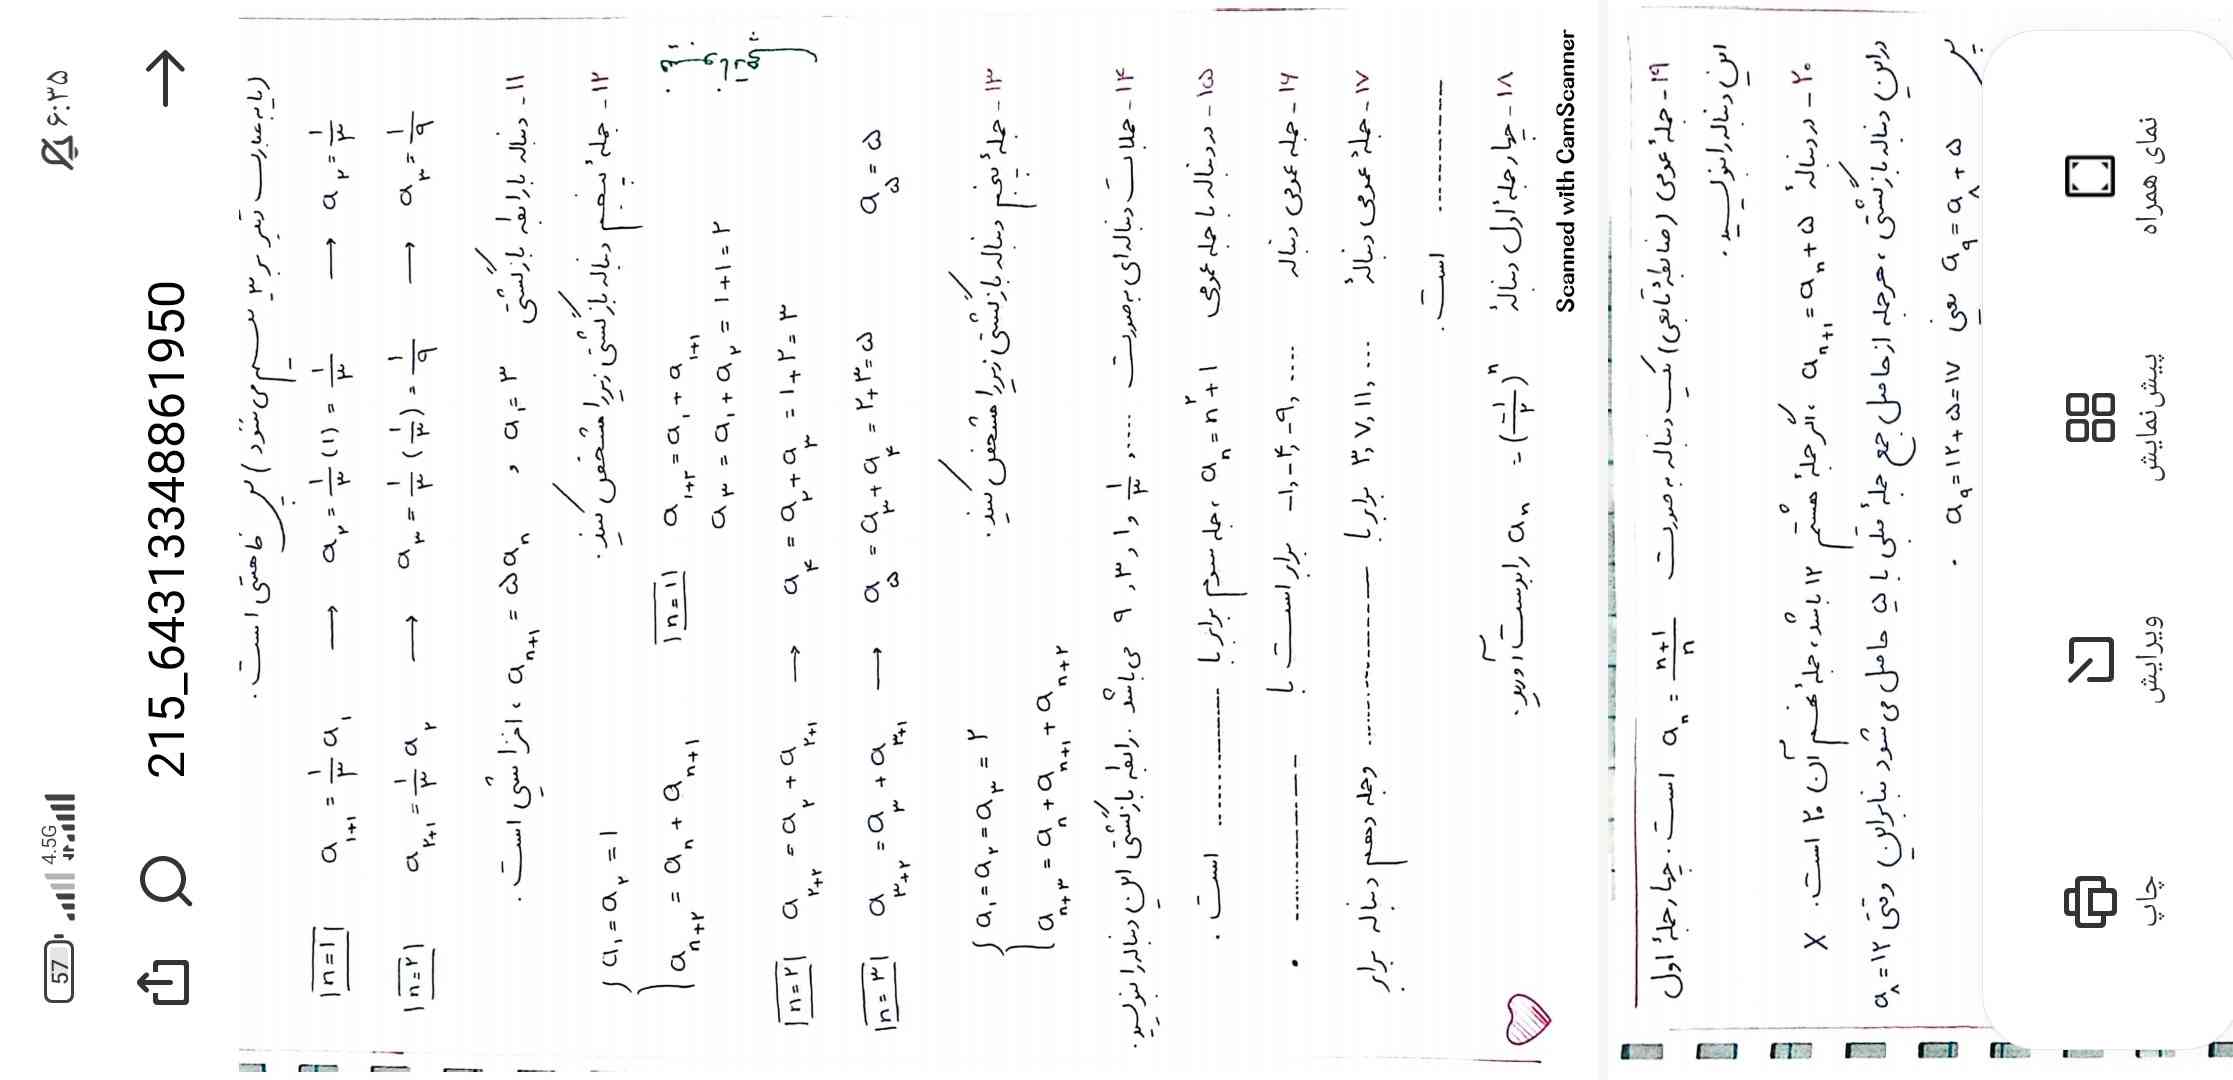 ۶:۳۵
57
4.5G
215_6431334886161950
(یا به عبارت دیگر بر ۳ تقسیم می شود) پس کاهشی است.
|n=۱| a₁₊₁ = ۱/۳ a₁ → a₂ = ۱/۳ (۱) = ۱/۳ → a₂ = ۱/۳
|n=۲| a₂₊₁ = ۱/۳ a₂ → a₃ = ۱/۳ (۱/۳) = ۱/۹ → a₃ = ۱/۹
۱۱- دنباله با رابطه بازگشتی a₁=۳ , aₙ₊₁ = ۵aₙ ، افزایشی است.
۱۲- جمله پنجم دنباله بازگشتی زیر را مشخص کنید.
{ a₁ = a₂ = ۱
aₙ₊₂ = aₙ + aₙ₊₁ |n=۱| a₁₊₂ = a₁ + a₁₊₁
a₃ = a₁ + a₂ = ۱+۱ = ۲
|n=۲| a₂₊₂ = a₂ + a₂₊₁ → a₄ = a₂ + a₃ = ۱+۲ = ۳
|n=۳| a₃₊₂ = a₃ + a₃₊₁ → a₅ = a₃ + a₄ = ۲+۳ = ۵ a₅ = ۵
۱۳- جمله پنجم دنباله بازگشتی زیر را مشخص کنید.
{ a₁ = a₂ = a₃ = ۲
aₙ₊₃ = aₙ + aₙ₊₁ + aₙ₊₂
۱۴- جملات دنباله ای به صورت ..... , ۱/۳ , ۱ , ۳ , ۹ می باشد. رابطه بازگشتی این دنباله را بنویسید.
۱۵- در دنباله با جمله عمومی aₙ = n² + ۱ ، جمله سوم برابر با .............. است.
۱۶- جمله عمومی دنباله ..., ۹-, ۴-, ۱- برابر است با ..............
۱۷- جمله عمومی دنبالهٔ ... , ۱۱ , ۷ , ۳ برابر با .............. و جمله دهم دنباله برابر
.............. است.
۱۸- چهار جملهٔ اول دنبالهٔ aₙ = (-۱/۲)ⁿ را بدست آورید.
Scanned with CamScanner
۱۹- جملهٔ عمومی (ضابطهٔ تابعی) یک دنباله به صورت aₙ = n+۱/n است. چهار جملهٔ اول
این دنباله را بنویسید.
۲۰- در دنبالهٔ aₙ₊₁ = aₙ + ۵ ، اگر جملهٔ هشتم ۱۲ باشد، جملهٔ نهم آن ۲۰ است. ✗
در این دنباله بازگشتی، هر جمله از حاصل جمع جملهٔ قبلی با ۵ حاصل می شود بنابراین وقتی a₈=۱۲
پس a₉ = a₈ + ۵ یعنی a₉ = ۱۲+۵ = ۱۷ .
نمای همراه
پیش‌نمایش
ویرایش
چاپ